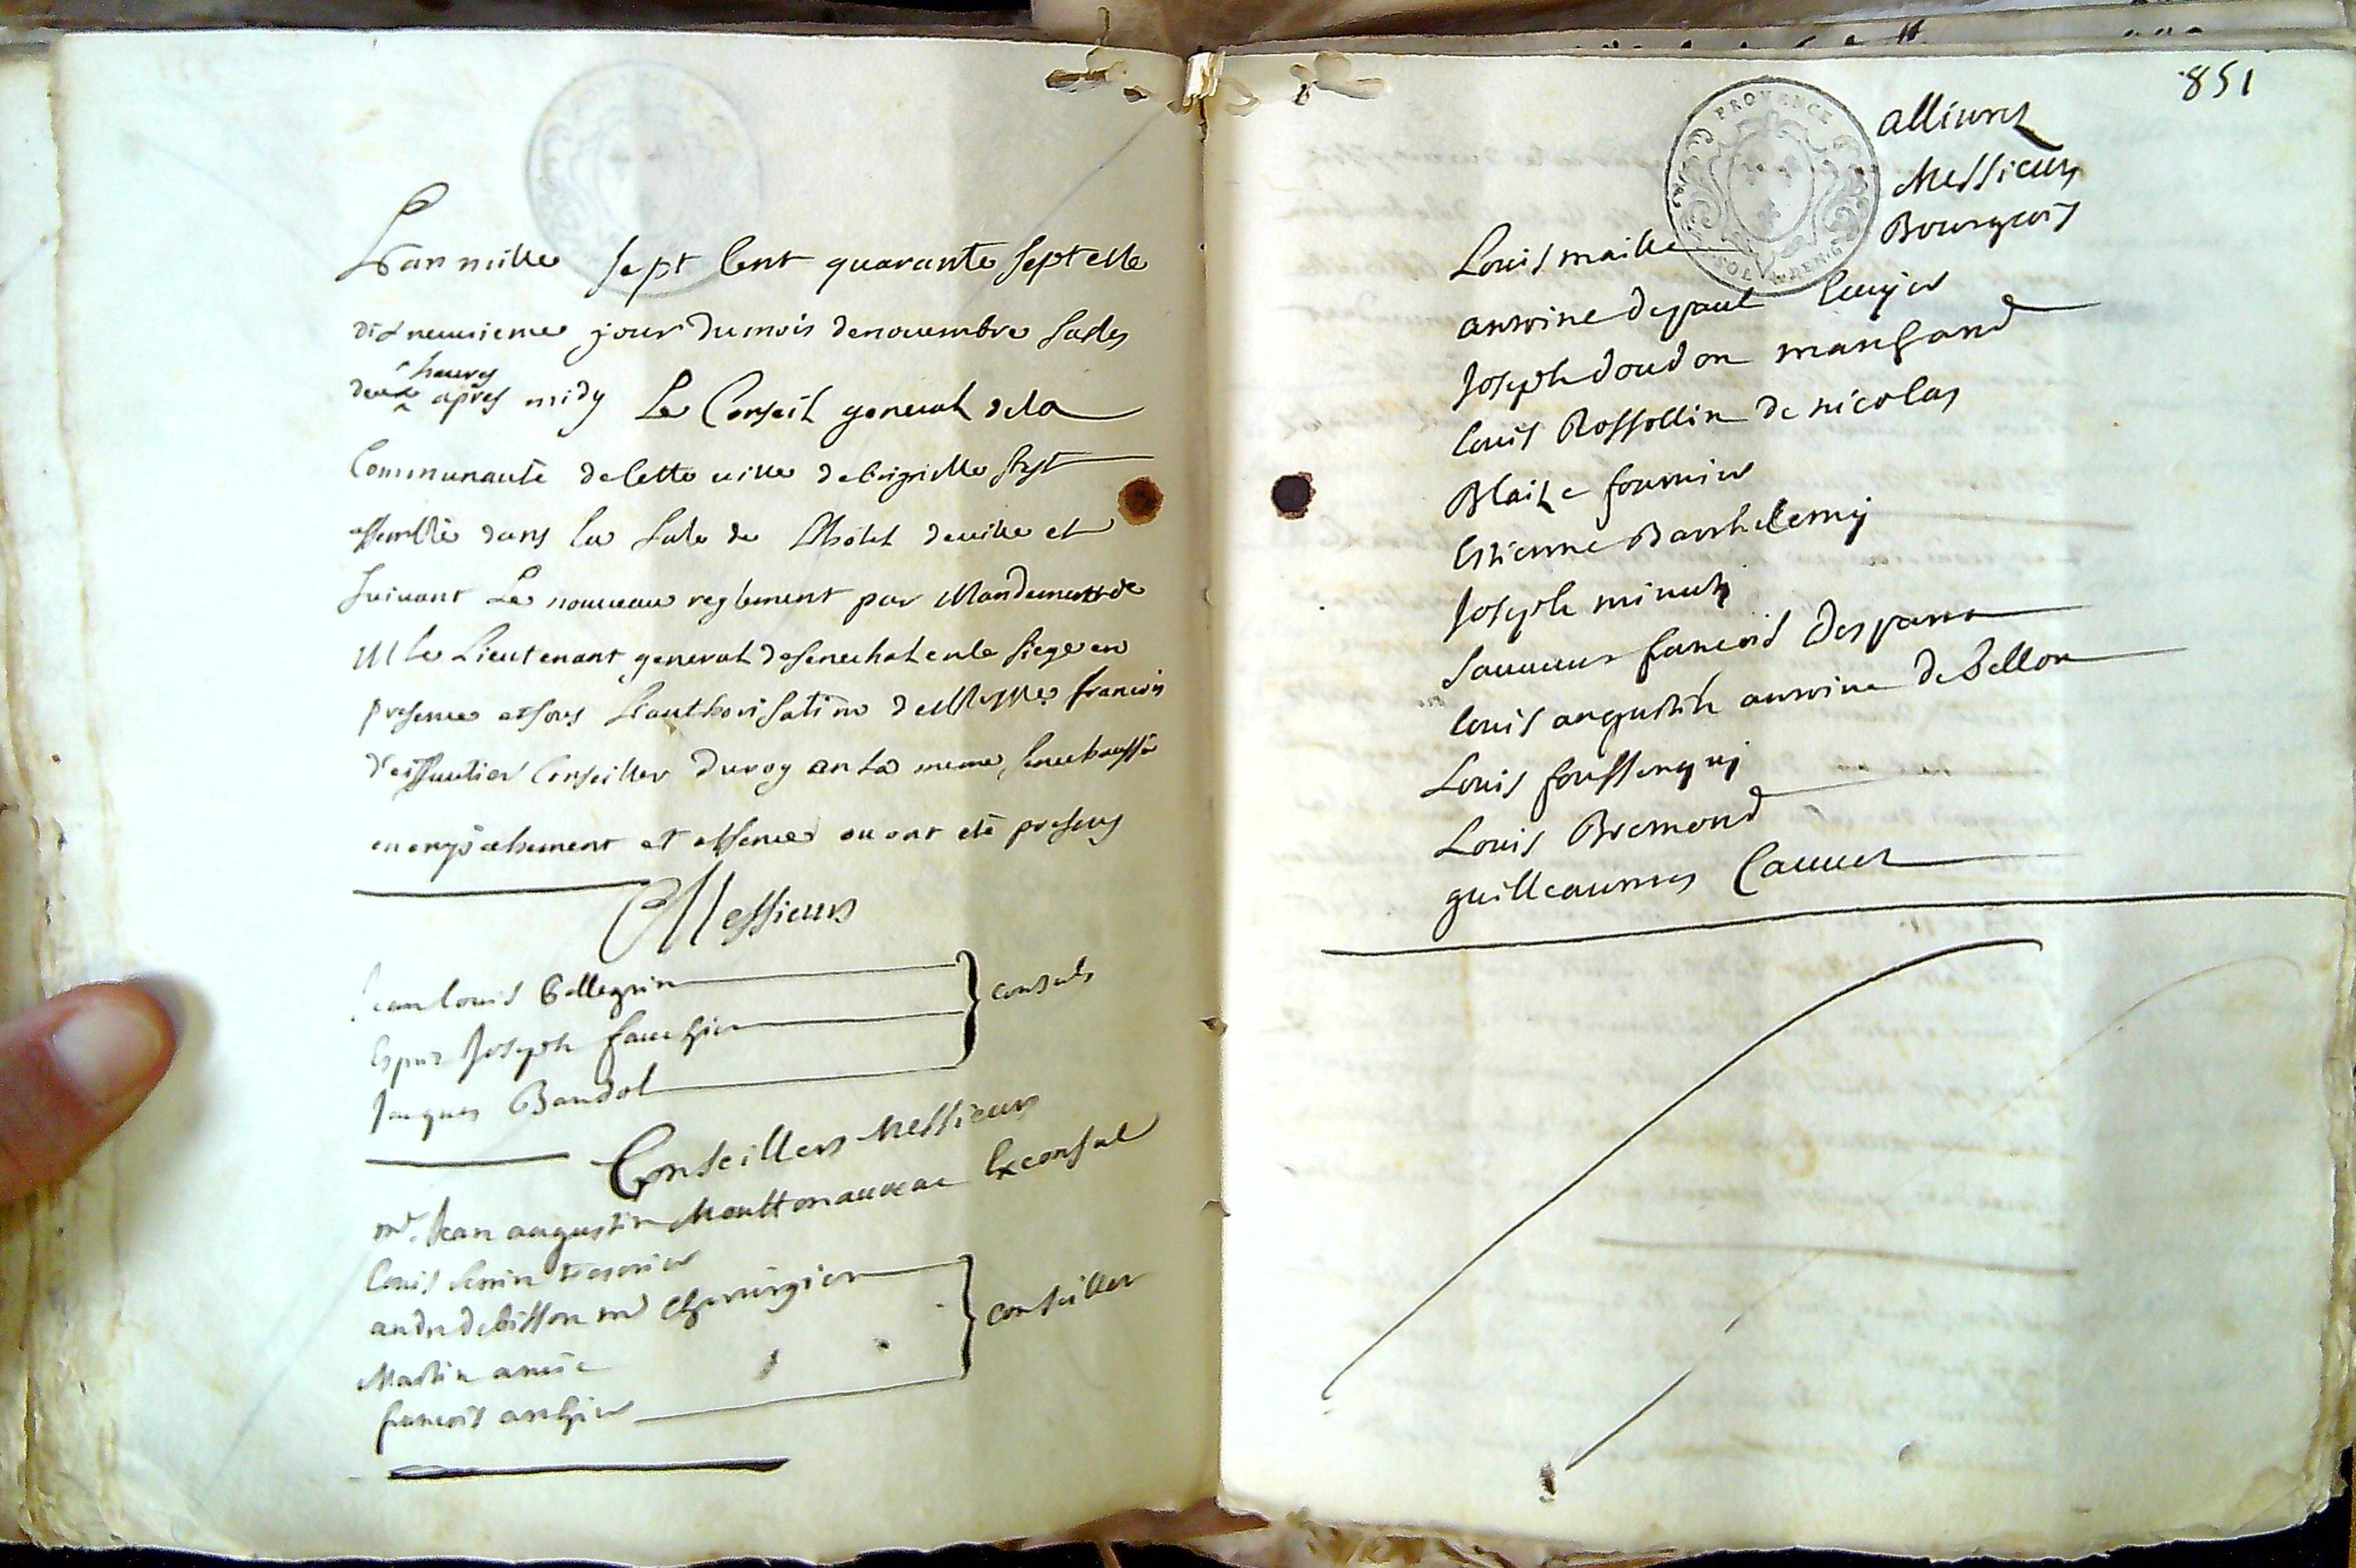 L'an mille sept cent quarante sept et le
dix neuvieme jour du mois de novembre sur les
deux heures apres midy Le Conseil general de la
Communauté de cette ville de brignolle s'est
assemblé dans la sale de L'hotel de ville et
suivant Le nouveau reglement par Mandement de
M le Lieutenant general de senechal en le siege en
presence et sous L'authorisation de Messire francois
Conseiller du roy en la meme senechaussée
en empechement et absence ou ont eté presens
Messieurs
Jean louis Pellegrin
Esprit Joseph fauchier
Jaques Bandol
consuls
Conseillers Messieurs
mr. Jean augustin Moutton Exconsul
louis tresorier
andre debisson me chirurgien
Martin amic
francois
conseiller
851
allivrez
Messieurs
Bourgeois
PROVENCE
SOL
DEN
Louis maille
antoine depaul
Joseph doudon marchand
louis Rossollin de nicolas
Blaize fournier
Estienne Barthelemy
Joseph minuty
Sauveur francois desparra
louis augustin antoine de bellon
Louis foussenquy
Louis Bremond
guilleaumes Cauvet